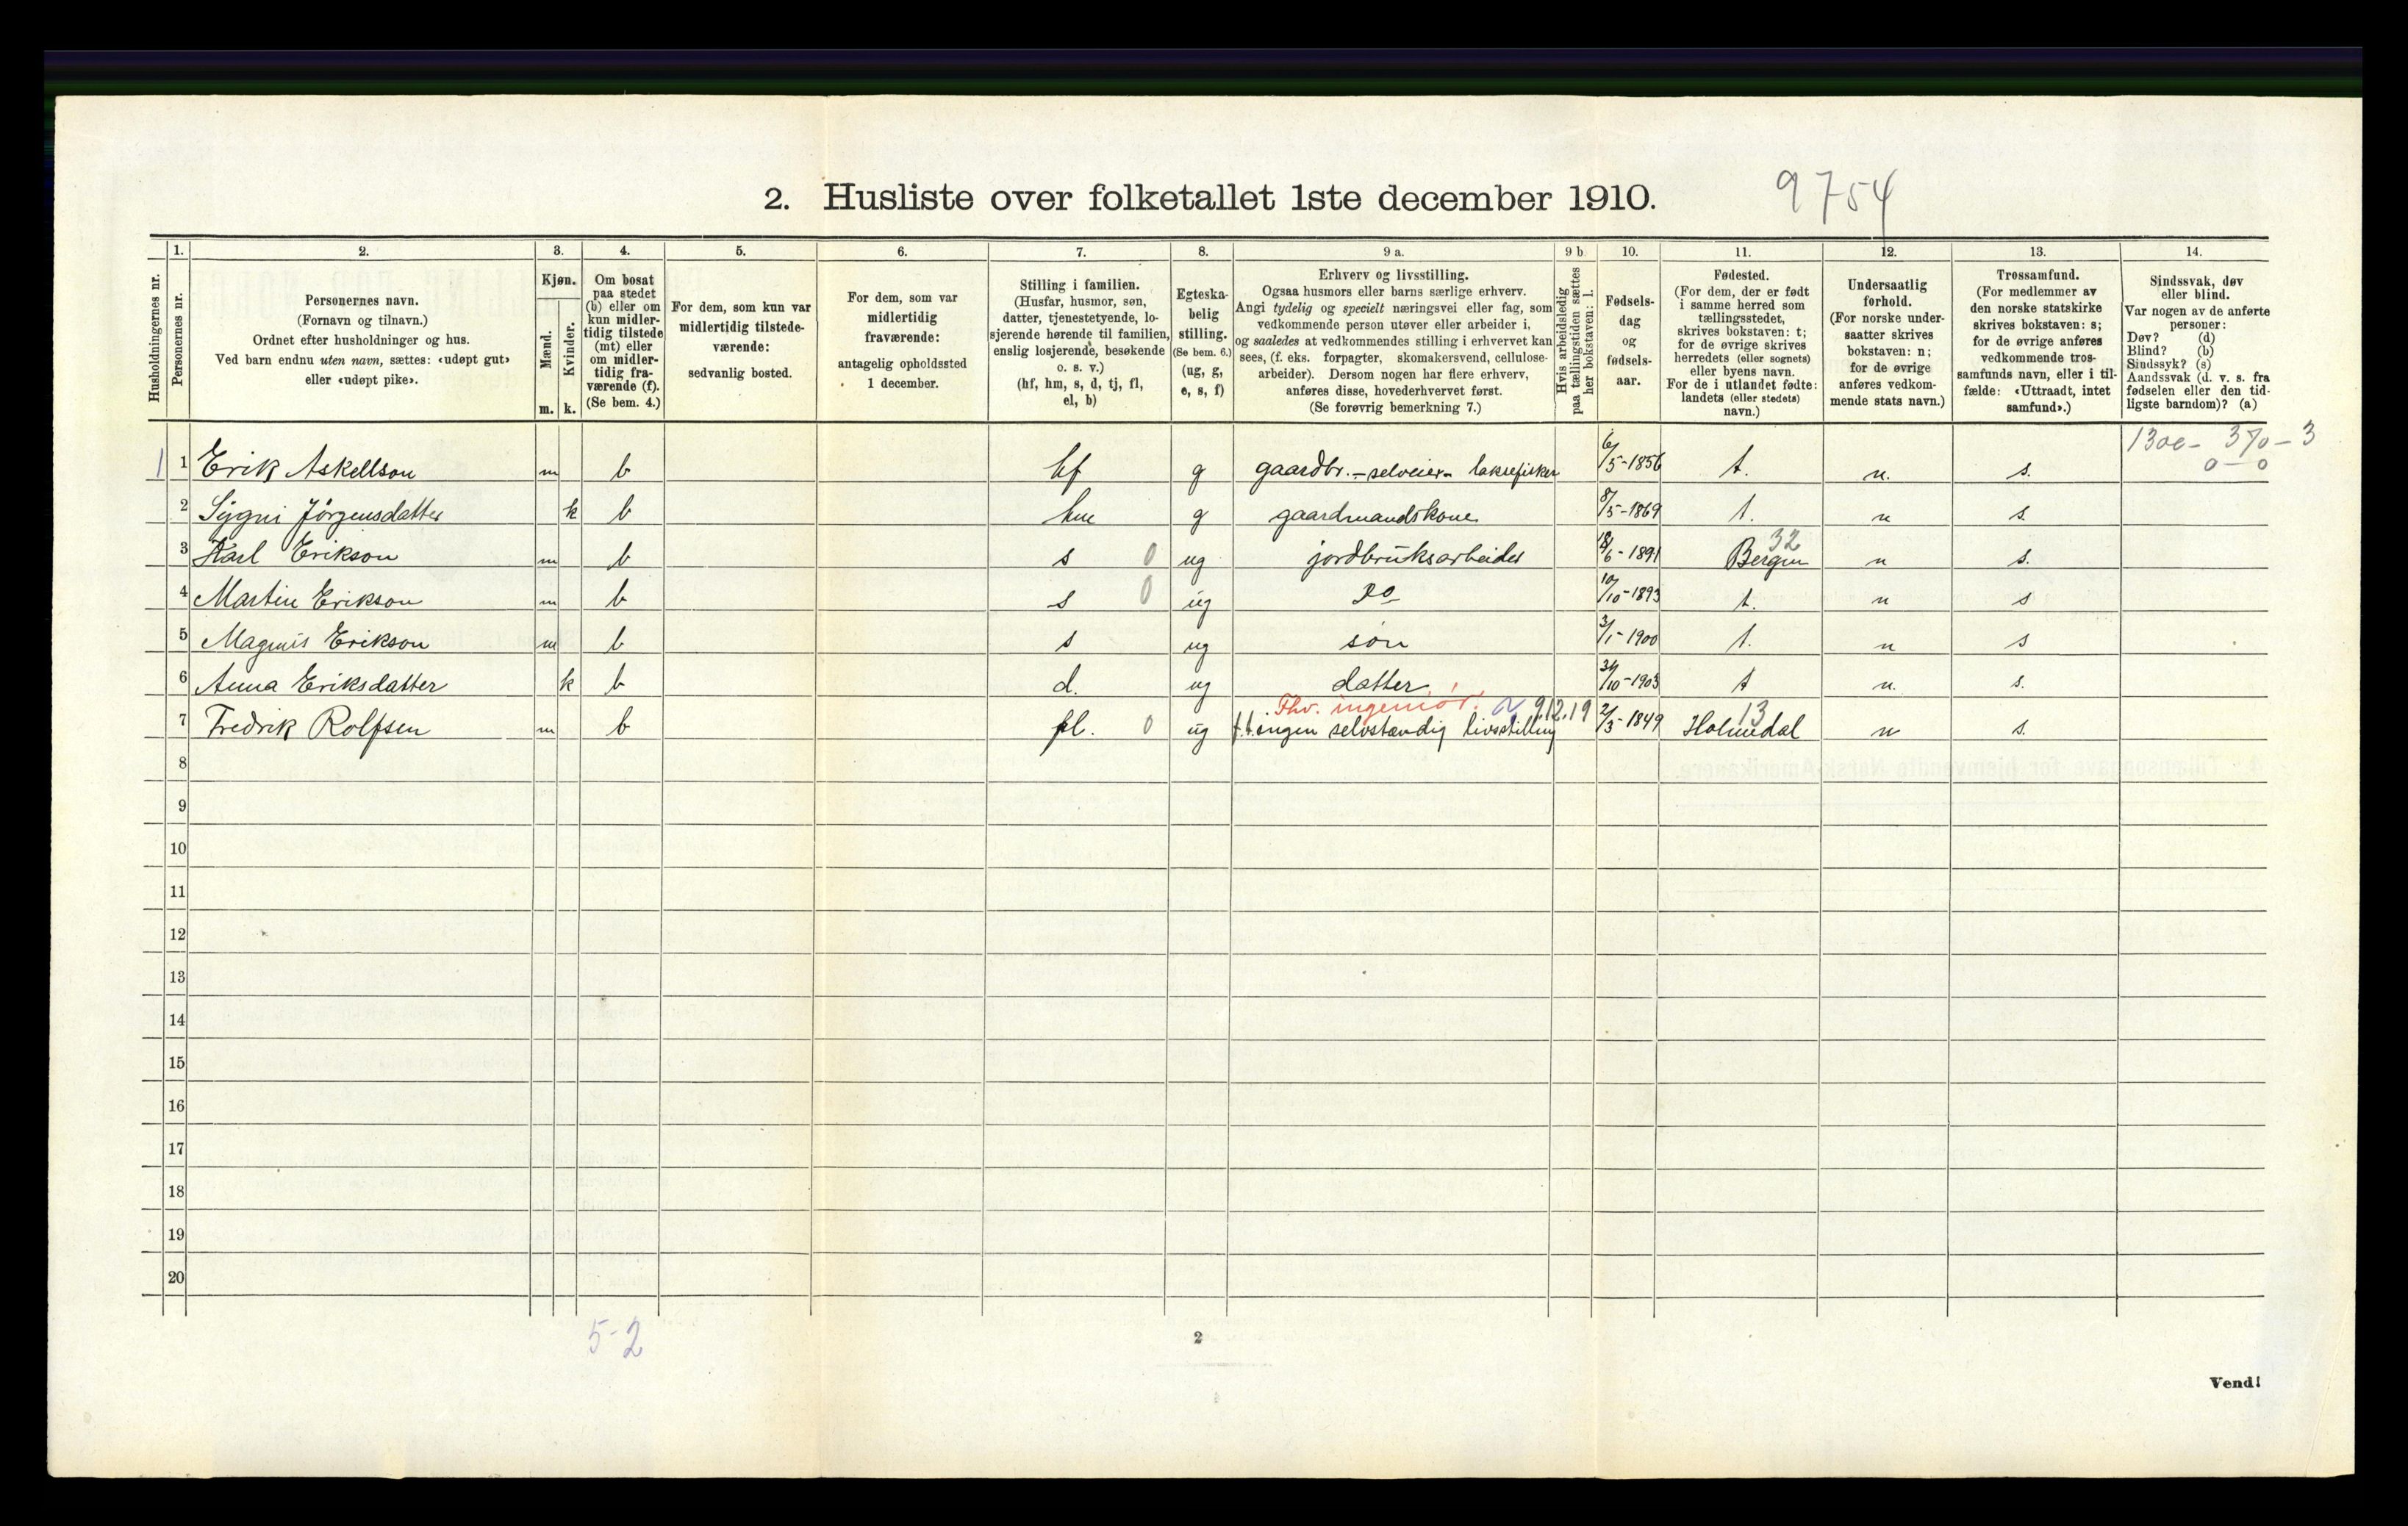 2. Husliste over folketallet 1ste december 1910.
9754
Husholdningernes nr.
1. Personernes nr.
2. Personernes navn.
(Fornavn og tilnavn.)
Ordnet efter husholdninger og hus.
Ved barn endnu uten navn, sættes: «udøpt gut»
eller «udøpt pike».
3. Kjøn.
Mænd. Kvinder.
m. k.
4. Om bosat
paa stedet
(b) eller om
kun midler-
tidig tilstede
(mt) eller
om midler-
tidig fra-
værende (f).
(Se bem. 4.)
5. For dem, som kun var
midlertidig tilstede-
værende:
sedvanlig bosted.
6. For dem, som var
midlertidig
fraværende:
antagelig opholdssted
1 december.
7. Stilling i familien.
(Husfar, husmor, søn,
datter, tjenestetyende, lo-
sjerende hørende til familien,
enslig losjerende, besøkende
o. s. v.)
(hf, hm, s, d, tj, fl,
el, b)
8. Egteska-
belig
stilling.
(Se bem. 6.)
(ug, g,
e, s, f)
9 a. Erhverv og livsstilling.
Ogsaa husmors eller barns særlige erhverv.
Angi tydelig og specielt næringsvei eller fag, som
vedkommende person utøver eller arbeider i,
og saaledes at vedkommendes stilling i erhvervet kan
sees, (f. eks. forpagter, skomakersvend, cellulose-
arbeider). Dersom nogen har flere erhverv,
anføres disse, hovederhvervet først.
(Se forøvrig bemerkning 7.)
9 b Hvis arbeidsledig
paa tællingstiden sættes
her bokstaven: l.
10. Fødsels-
dag
og
fødsels-
aar.
11. Fødested.
(For dem, der er født
i samme herred som
tællingsstedet,
skrives bokstaven: t;
for de øvrige skrives
herredets (eller sognets)
eller byens navn.
For de i utlandet fødte:
landets (eller stedets)
navn.)
12. Undersaatlig
forhold.
(For norske under-
saatter skrives
bokstaven: n;
for de øvrige
anføres vedkom-
mende stats navn.)
13. Trossamfund.
(For medlemmer av
den norske statskirke
skrives bokstaven: s;
for de øvrige anføres
vedkommende tros-
samfunds navn, eller i til-
fælde: «Uttraadt, intet
samfund».)
14. Sindssvak, døv
eller blind.
Var nogen av de anførte
personer:
Døv? (d)
Blind? (b)
Sindssyk? (s)
Aandssvak (d. v. s. fra
fødselen eller den tid-
ligste barndom)? (a)
370 - 3
0 - 0
1 1 Erik Askellson m b hf g gaardbr. - selveier - laksefisker 6/5-1856 t. n. s.
2 Signi Jörgensdatter k b hm g gaardmandskone 8/5-1869 t. n s.
32
3 Karl Erikson m b s 0 ug jordbruksarbeider 18/6-1891 Bergen n s.
4 Martin Erikson m b s 0 ug do 10/10-1893 t. n s
5 Magnus Erikson m b s ug søn 3/1-1900 t. n s
6 Anna Eriksdatter k b d. ug datter /10-1903 t n. s.
Fhv. ingeniør. 9.12.19 13
7 Fredrik Rolfsen m b fl. 0 ug f.t. ingen selvstændig livsstilling 2/3-1849 Holmedal n s.
8
9
10
11
12
13
14
15
16
17
18
19
20
5-2
2
Vend!